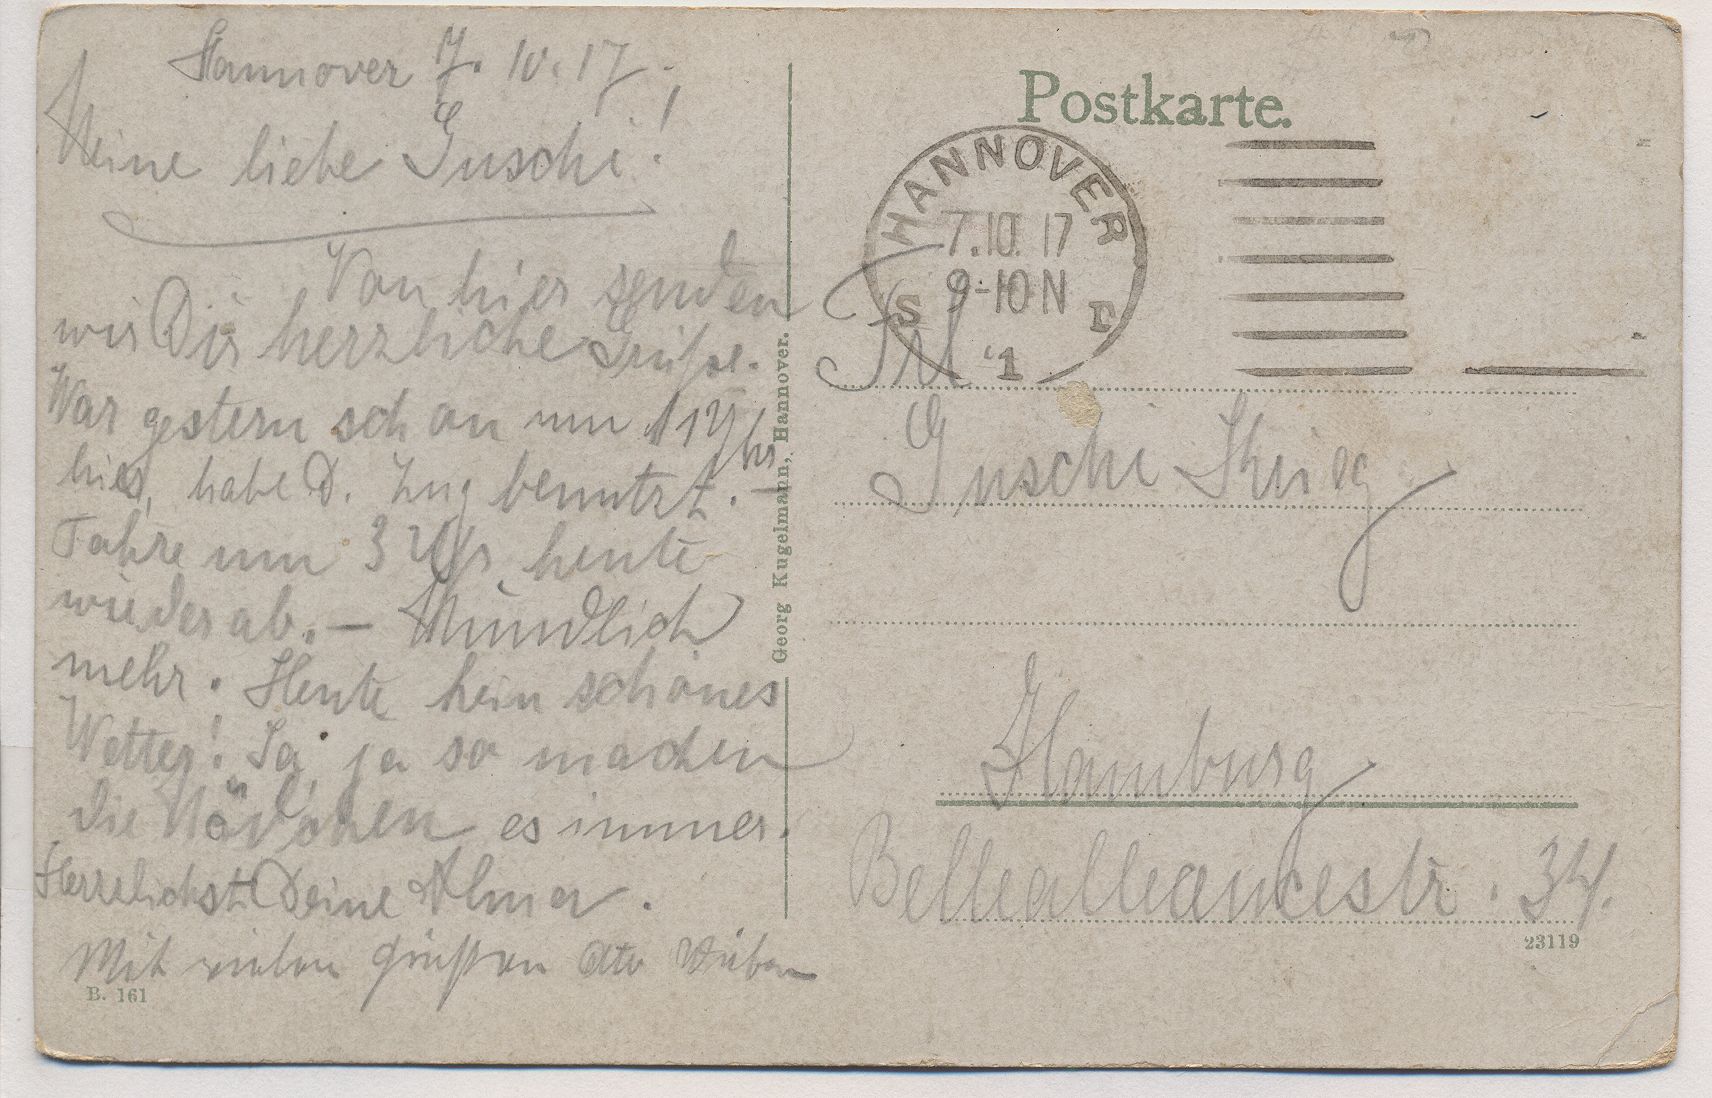 Hannover 7. 10. 17.
Meine liebe Guschi!
Von hier senden
wir Dir herzliche Grüße.
War gestern schon um 11 Uhr
hier, habe D. Zug benutzt. –
Fahre um 3 Uhr heute
wieder ab. – Mündlich
mehr. Heute kein schönes
Wetter! Ja, ja so machen
die Mädchen es immer.
Herzlichst Deine Alma.
Mit vielen Grüßen Otto
B. 161
Georg Kugelmann, Hannover.
Postkarte.
HANNOVER
7.10.17
9-10 N
S 1
Frl
Guschi
Hamburg
Bellealleancestr. 34.
23119